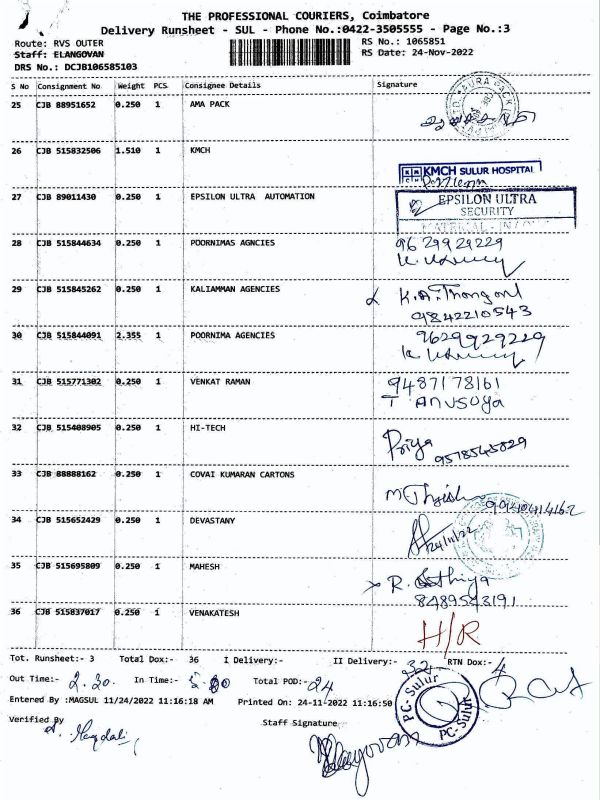 THE PROFESSIONAL COURIERS, Coimbatore
Delivery Runsheet - SUL - Phone No.:0422-3505555 - Page No.:3
Route: RVS OUTER
Staff: ELANGOVAN
DRS No.: DCJB106585103
RS No.: 1065851
RS Date: 24-Nov-2022
S No Consignment No Weight PCS Consignee Details Signature
25 CJB 88951652 0.250 1 AMA PACK
26 CJB 515832506 1.510 1 KMCH
KMCH SULUR HOSPITAL
27 CJB 89011430 0.250 1 EPSILON ULTRA AUTOMATION
EPSILON ULTRA
SECURITY
28 CJB 515844634 0.250 1 POORNIMAS AGNCIES 9629929229
29 CJB 515845262 0.250 1 KALIAMMAN AGENCIES K.A.Thangavel
9842210543
30 CJB 515844091 2.355 1 POORNIMA AGENCIES 9629929229
31 CJB 515771302 0.250 1 VENKAT RAMAN 9487178161
T Anusoya
32 CJB 515408905 0.250 1 HI-TECH Priya 9578545829
33 CJB 88888162 0.250 1 COVAI KUMARAN CARTONS
34 CJB 515652429 0.250 1 DEVASTANY 24/11/22
35 CJB 515695809 0.250 1 MAHESH R. Sathiya
8489543191
36 CJB 515837017 0.250 1 VENAKATESH H/R
Tot. Runsheet:- 3 Total Dox:- 36 I Delivery:- II Delivery:- 32 RTN Dox:- 4
Out Time:- 2.20. In Time:- Total POD:- 24
Entered By :MAGSUL 11/24/2022 11:16:18 AM Printed On: 24-11-2022 11:16:50
PC-Sulur
PC-Sulur
Verified By Staff Signature